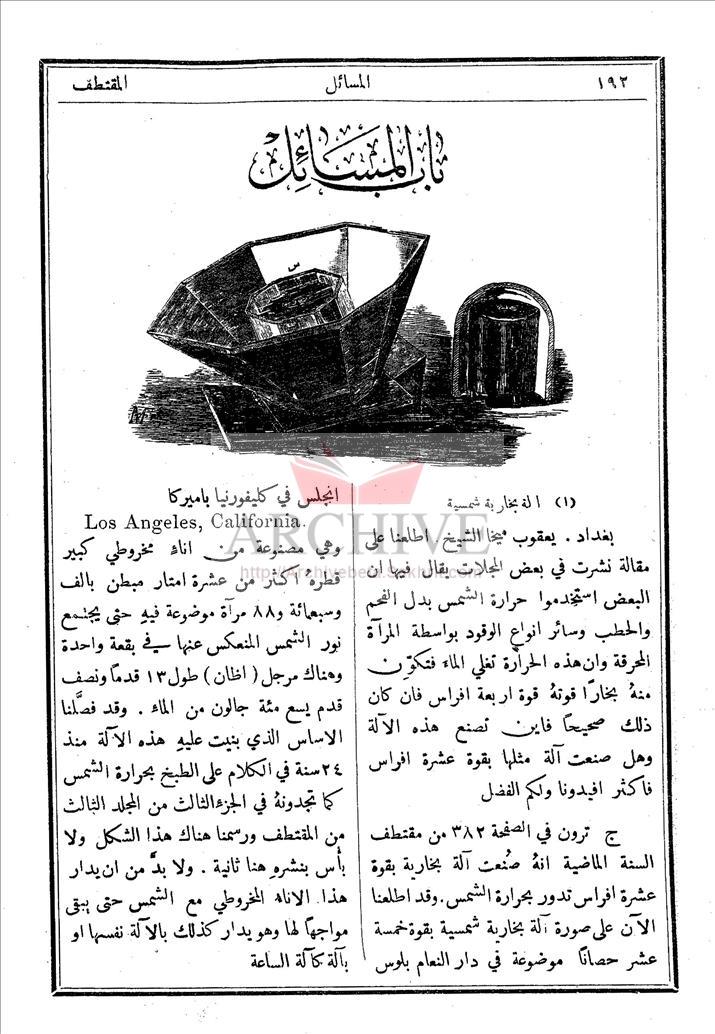 ١٩٢
المسائل
المقتطف
باب المسائل
س
(١) الة بخارية شمسية
بغداد . يعقوب ميخا الشيخ . اطلعنا على
مقالة نشرت في بعض المجلات يقال فيها ان
البعض استخدموا حرارة الشمس بدل الفحم
والحطب وسائر انواع الوقود بواسطة المرآة
المحرقة وان هذه الحرارة تغلي الماء فتكون
منهُ بخارًا قوتهُ قوة اربعة افراس فان كان
ذلك صحيحًا فاين تصنع هذه الآلة
وهل صنعت آلة مثلها بقوة عشرة افراس
فاكثر افيدونا ولكم الفضل
ج ترون في الصفحة ٣٨٢ من مقتطف
السنة الماضية انهُ صُنعت آلة بخارية بقوة
عشرة افراس تدور بحرارة الشمس . وقد اطلعنا
الآن على صورة آلة بخارية شمسية بقوة خمسة
عشر حصانًا موضوعة في دار النعام بلوس
انجلس في كليفورنيا باميركا
Los Angeles, California.
وهي مصنوعة من اناءٍ مخروطي كبير
قطرهُ اكثر من عشرة امتار مبطن بالف
وسبعمائة و٨٨ مرآة موضوعة فيهِ حتى يجتمع
نور الشمس المنعكس عنها في بقعة واحدة
وهناك مرجل ( اظان ) طول ١٣ قدمًا ونصف
قدم يسع مئة جالون من الماء . وقد فصَّلنا
الاساس الذي بنيت عليهِ هذه الآلة منذ
٢٤ سنة في الكلام على الطبخ بحرارة الشمس
كما تجدونهُ في الجزء الثالث من المجلد الثالث
من المقتطف ورسمنا هناك هذا الشكل ولا
بأس بنشرهِ هنا ثانية . ولا بدَّ من ان يدار
هذا الاناء المخروطي مع الشمس حتى يبقى
مواجهًا لها وهو يدار كذلك بالآلة نفسها او
بآلة كآلة الساعة
ARCHIVE